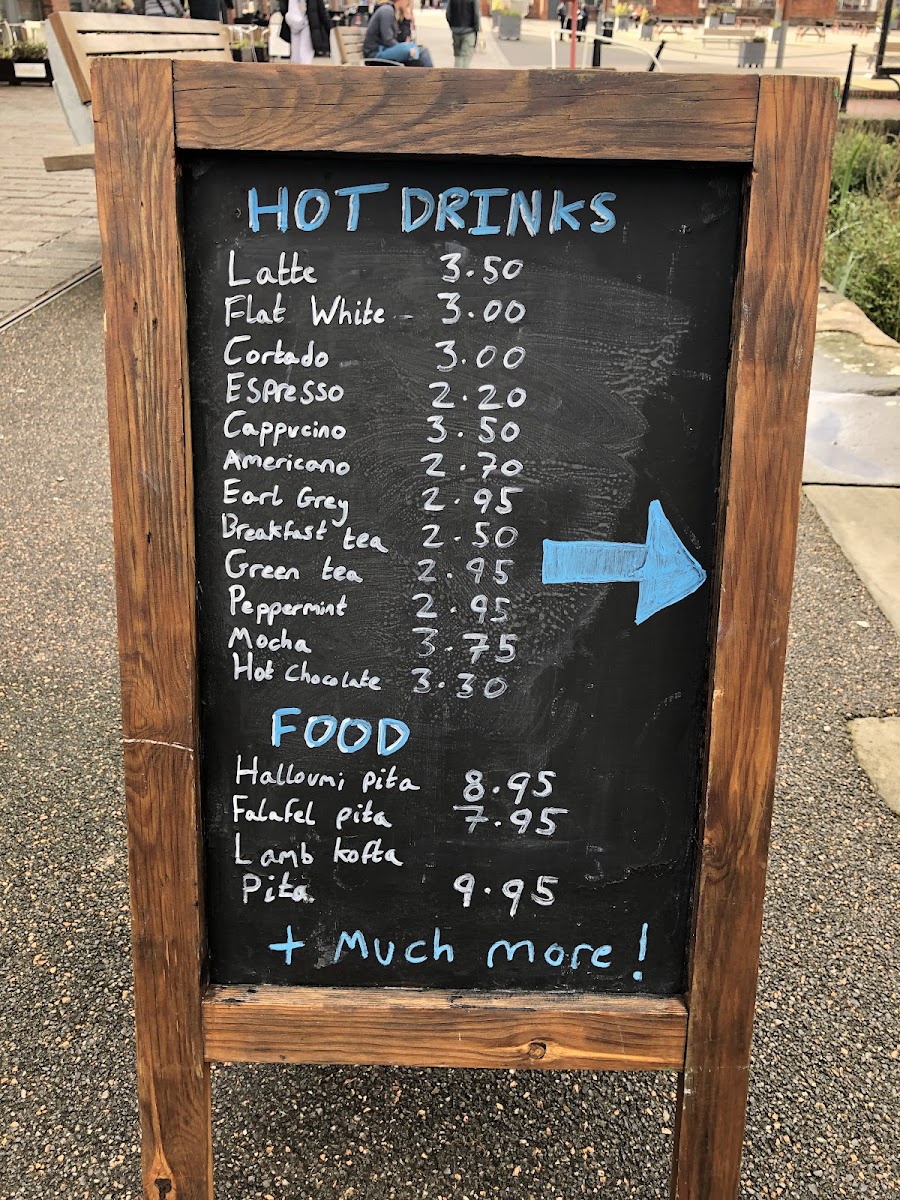 HOT DRINKS
Latte 3.50
Flat White - 3.00
Cortado 3.00
Espresso 2.20
Cappucino 3.50
Americano 2.70
Earl Grey 2.95
Breakfast tea 2.50
Green tea 2.95
Peppermint 2.95
Mocha 3.75
Hot Chocolate 3.30
FOOD
Halloumi pita 8.95
Falafel pita 7.95
Lamb kofta
Pita 9.95
+ Much more!